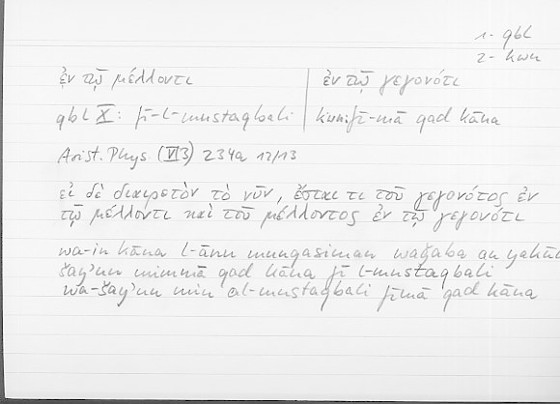 1- qbl
2- kwn
ἐν τῷ μέλλοντι
ἐν τῷ γεγονότι
qbl X: fī-l-mustaqbali
fī-mā qad kāna
Arist. Phys. (VI 3) 234a 12/13
εἰ δὲ διαιρετὸν τὸ νῦν, ἔσται τι τοῦ γεγονότος ἐν
τῷ μέλλοντι καὶ τοῦ μέλλοντος ἐν τῷ γεγονότι
wa-in kāna l-ānu munqasiman waǧaba an yakūna
šay'un mimmā qad kāna fī l-mustaqbali
wa-šay'un min al-mustaqbali fīmā qad kāna